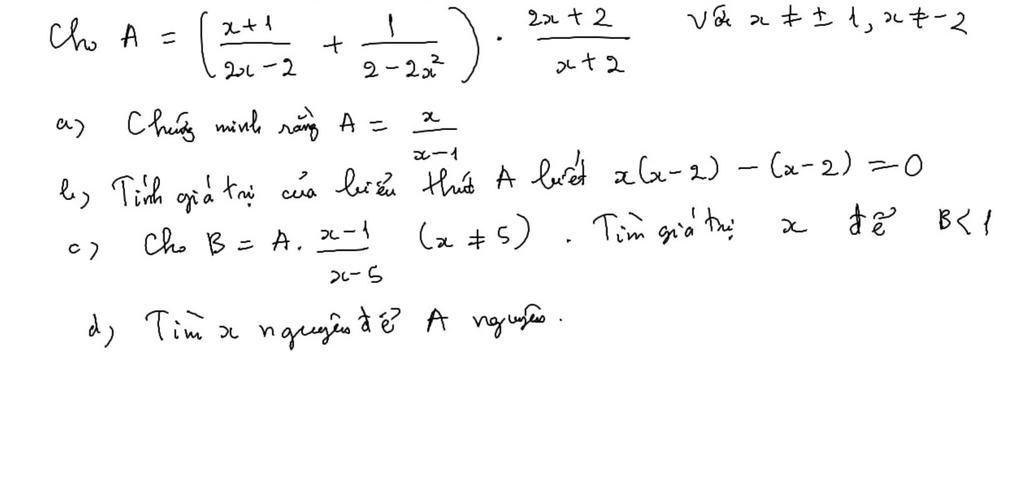 Cho A = ( (x+1)/(2x-2) + 1/(2-2x²) ) . (2x+2)/(x+2) Với x ≠ ± 1, x ≠ -2
a) Chứng minh rằng A = x/(x-1)
b) Tính giá trị của biểu thức A biết x(x-2) - (x-2) = 0
c) Cho B = A. (x-1)/(x-5) (x ≠ 5). Tìm giá trị x để B < 1
d) Tìm x nguyên để A nguyên.